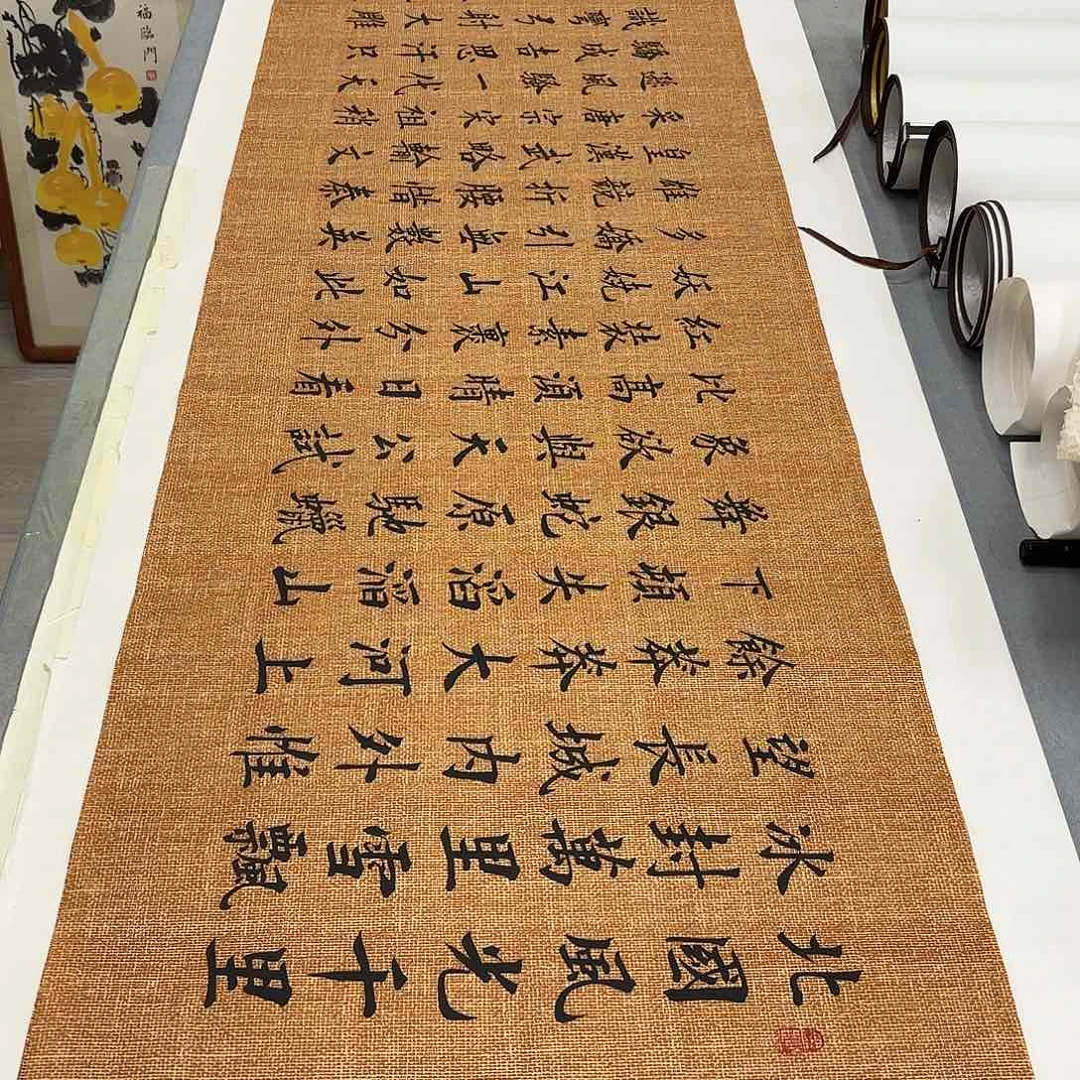 北國風光千里
冰封萬里雪飄
望長城內外惟
餘莽莽大河上
下頓失滔滔山
舞銀蛇原馳蠟
象欲與天公試
比高須晴日看
紅裝素裹分外
妖嬈江山如此
多嬌引無數英
雄競折腰惜秦
皇漢武略輸文
采唐宗宋祖稍
遜風騷一代天
驕成吉思汗只
識彎弓射大雕
福臨門